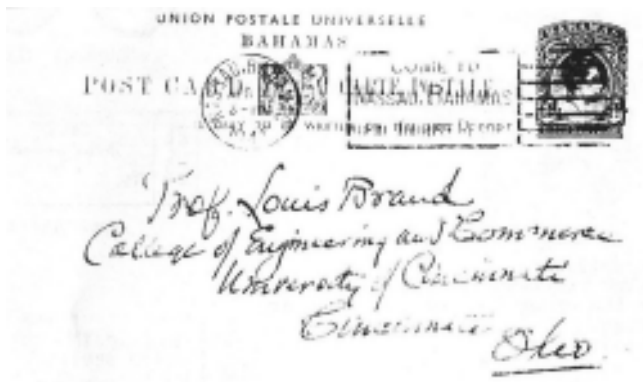 UNION POSTALE UNIVERSELLE
BAHAMAS
POST CARD CARTE POSTALE
COME TO
NASSAU, BAHAMAS
Prof. Louis Brand
College of Engineering and Commerce
University of Cincinnati
Cincinnati
Ohio